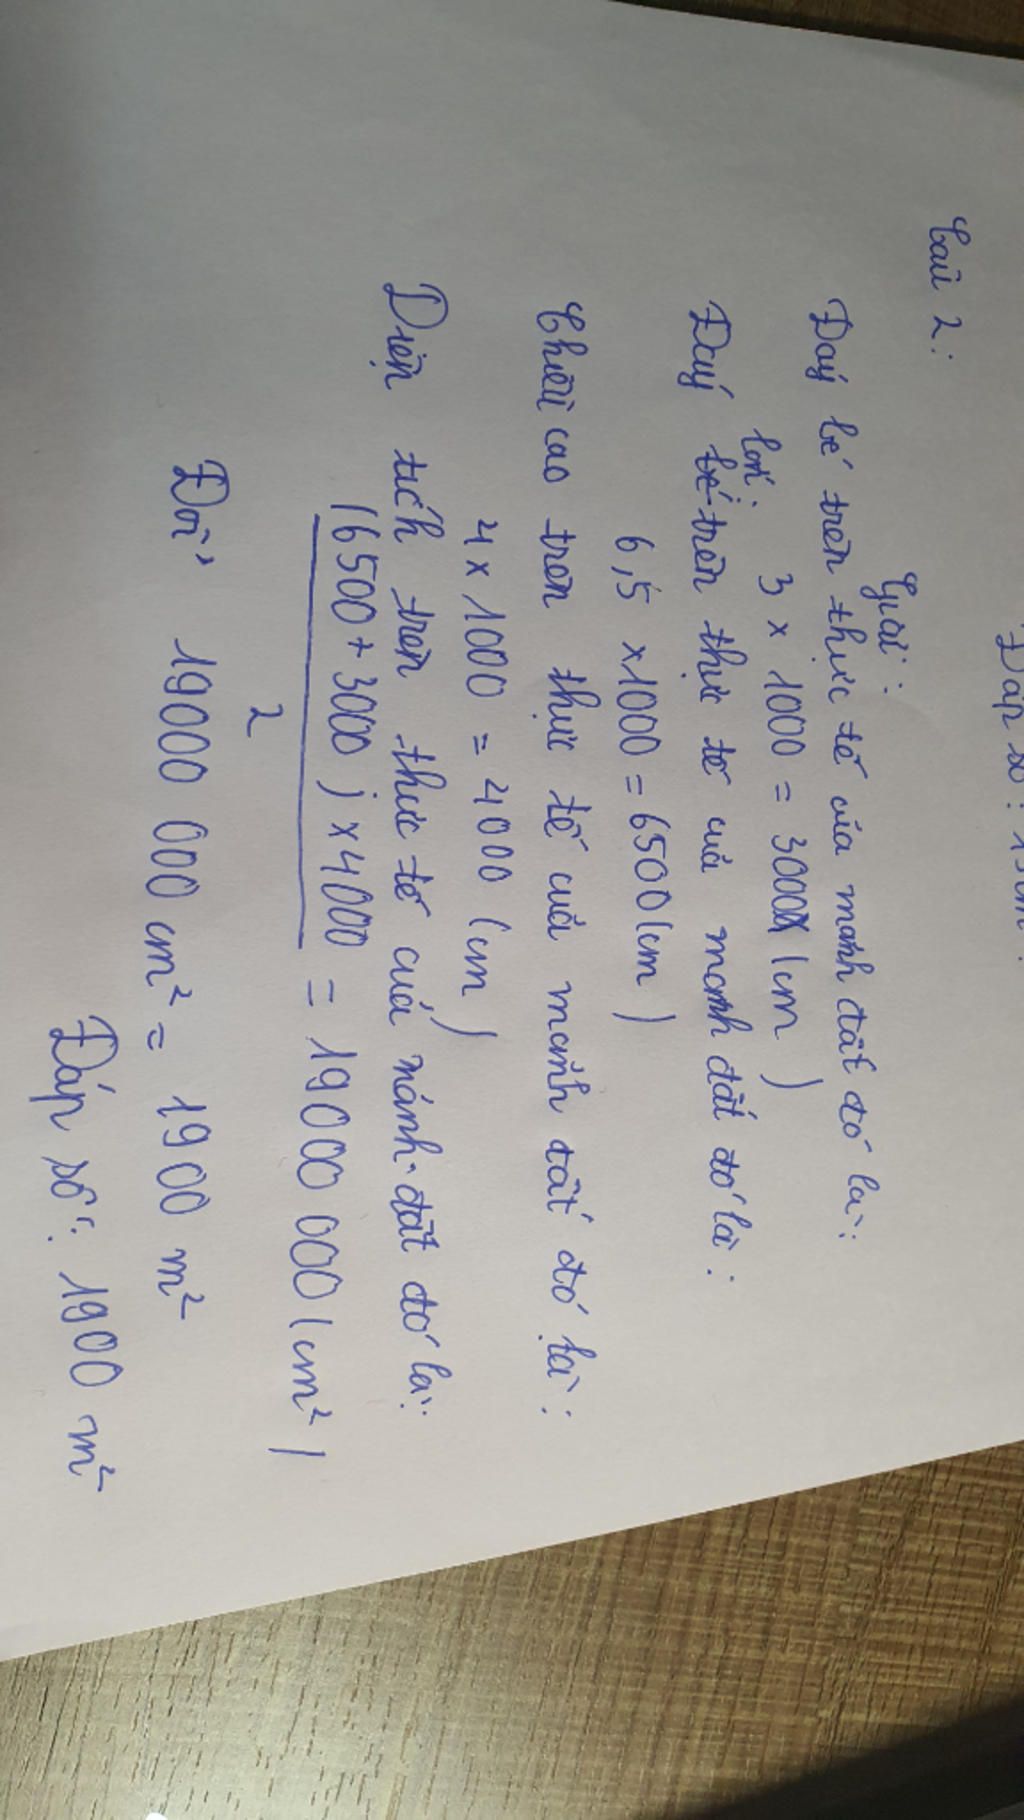 Đáp số: 13cm.
Câu 2:
Giải:
Đáy bé trên thực tế của mảnh đất đó là:
3 x 1000 = 3000 (cm)
Đáy lớn trên thực tế của mảnh đất đó là:
6,5 x 1000 = 6500 (cm)
Chiều cao trên thực tế của mảnh đất đó là:
4 x 1000 = 4000 (cm)
Diện tích trên thực tế của mảnh đất đó là:
(6500 + 3000) x 4000 = 19000 000 (cm²)
2
Đổi 19000 000 cm² = 1900 m²
Đáp số: 1900 m²